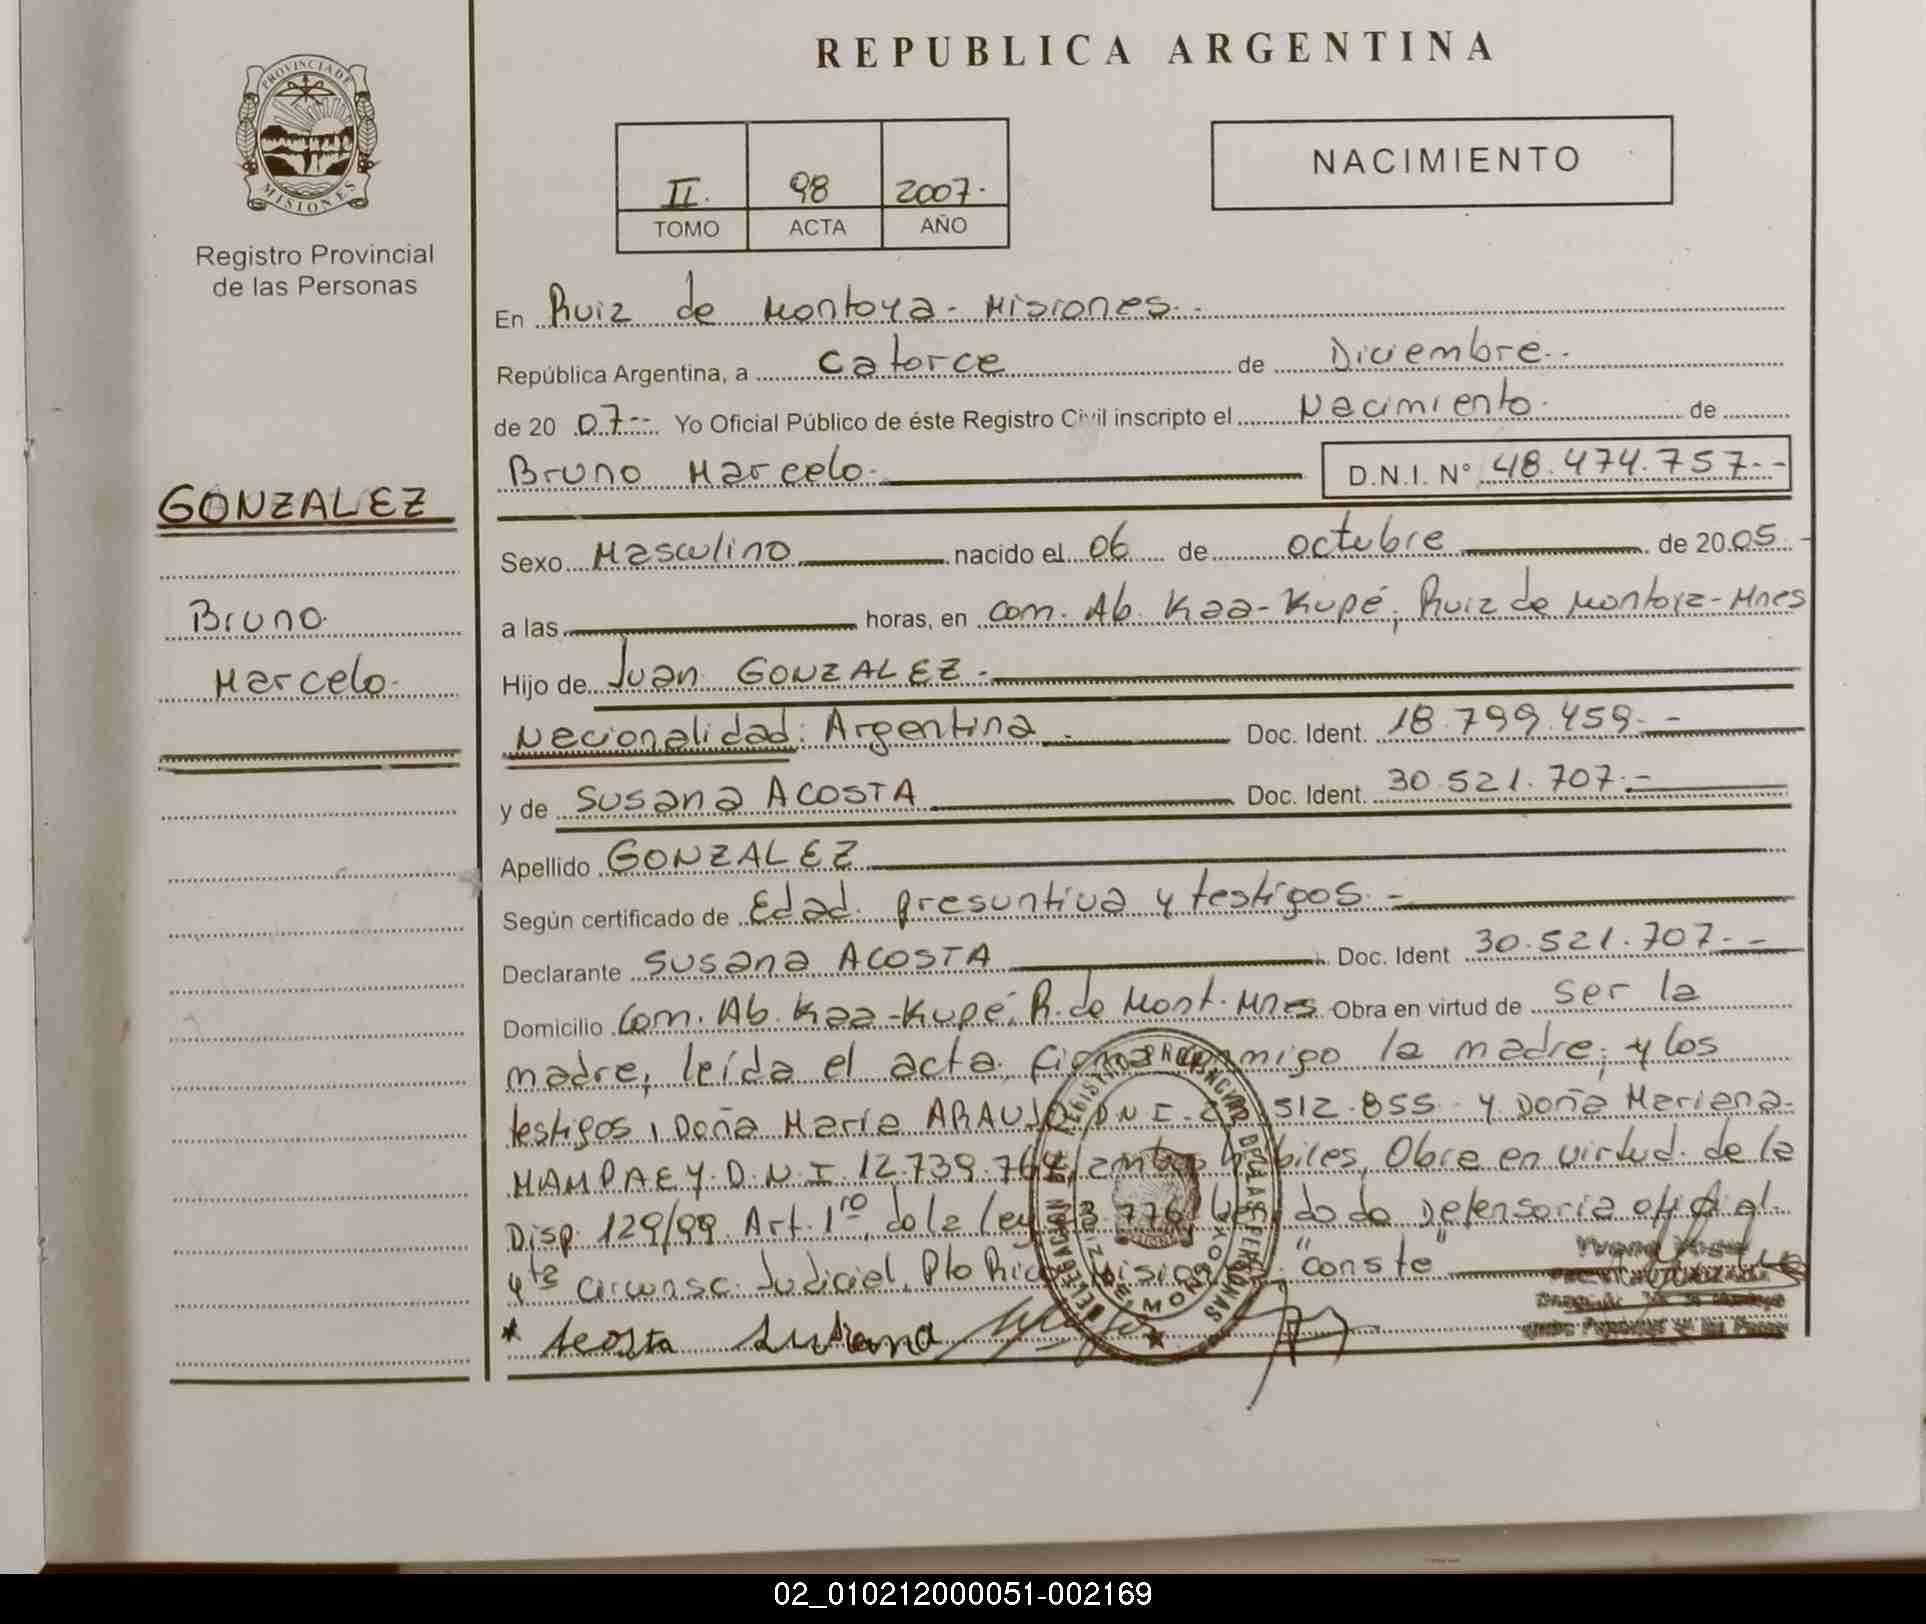 REPUBLICA ARGENTINA
PROVINCIA DE
MISIONES
Registro Provincial
de las Personas
II. 98 2007.
TOMO ACTA AÑO
NACIMIENTO
En Ruiz de Montoya - Misiones.
República Argentina, a catorce de Diciembre.
de 20 07 Yo Oficial Público de éste Registro Civil inscripto el Nacimiento de
Bruno Marcelo. D.N.I. Nº 48.474.757.-
GONZALEZ
Bruno
Marcelo
Sexo Masculino nacido el 06 de octubre de 20 05 -
a las horas, en Com. Ab. Kaa-Kupé, Ruiz de Montoya-Mnes
Hijo de Juan GONZALEZ.
Nacionalidad: Argentina. Doc. Ident. 18.799.459.-
y de Susana ACOSTA Doc. Ident. 30.521.707.-
Apellido GONZALEZ
Según certificado de Edad presuntiva y testigos. -
Declarante Susana ACOSTA Doc. Ident 30.521.707.-
Domicilio Com. Ab. Kaa-Kupé, R. de Mont. Mnes Obra en virtud de ser la
madre, leída el acta, firma conmigo la madre, y los
testigos, Doña María ARAUJO D.N.I. 512.855 y Doña Mariana
MAMPAEY. D.N.I. 12.739.764, ambos hábiles, Obra en virtud de la
Disp. 129/99 Art. 1ro de la ley do de Defensoría oficial
4ta circunsc. Judicial, Pto Rico Misiones, "conste"
* Acosta Susana
REGISTRO PROVINCIAL DE LAS PERSONAS
DELEGACION
RUIZ DE MONTOYA
02_010212000051-002169